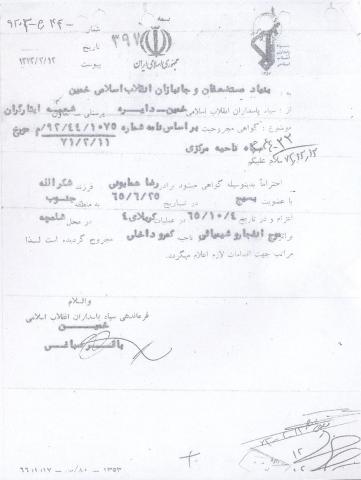 بسمه تعالی
شماره
تاریخ ۱۳۷۲/۲/۱۲
پیوست
۳۹۷
جمهوری اسلامی ایران
به : بنیاد مستضعفان و جانبازان انقلاب اسلامی خمین
از : سپاه پاسداران انقلاب اسلامی خمین - دایره پرسنلی - شعبه ایثارگران
موضوع : گواهی مجروحیت بر اساس نامه شماره ۹۲/۴۴/۱۰۷۵/م مورخ
۷۱/۲/۱۱ ناحیه مرکزی
سلام علیکم
احتراماً بدینوسیله گواهی میشود برادر رضا همایونی فرزند شکرالله
با عضویت بسیج در تاریخ ۶۵/۶/۲۵ به منطقه جنوب
اعزام و در تاریخ ۶۵/۱۰/۴ در عملیات کربلای۴ در محل شلمچه
موج انفجار و شیمیائی مجروح گردیده است لذا
مراتب جهت اقدامات لازم اعلام میگردد.
والسلام
فرماندهی سپاه پاسداران انقلاب اسلامی
خمین
۱۳۵۳ - ۸۰/ - ۶۶/۱/۱۷